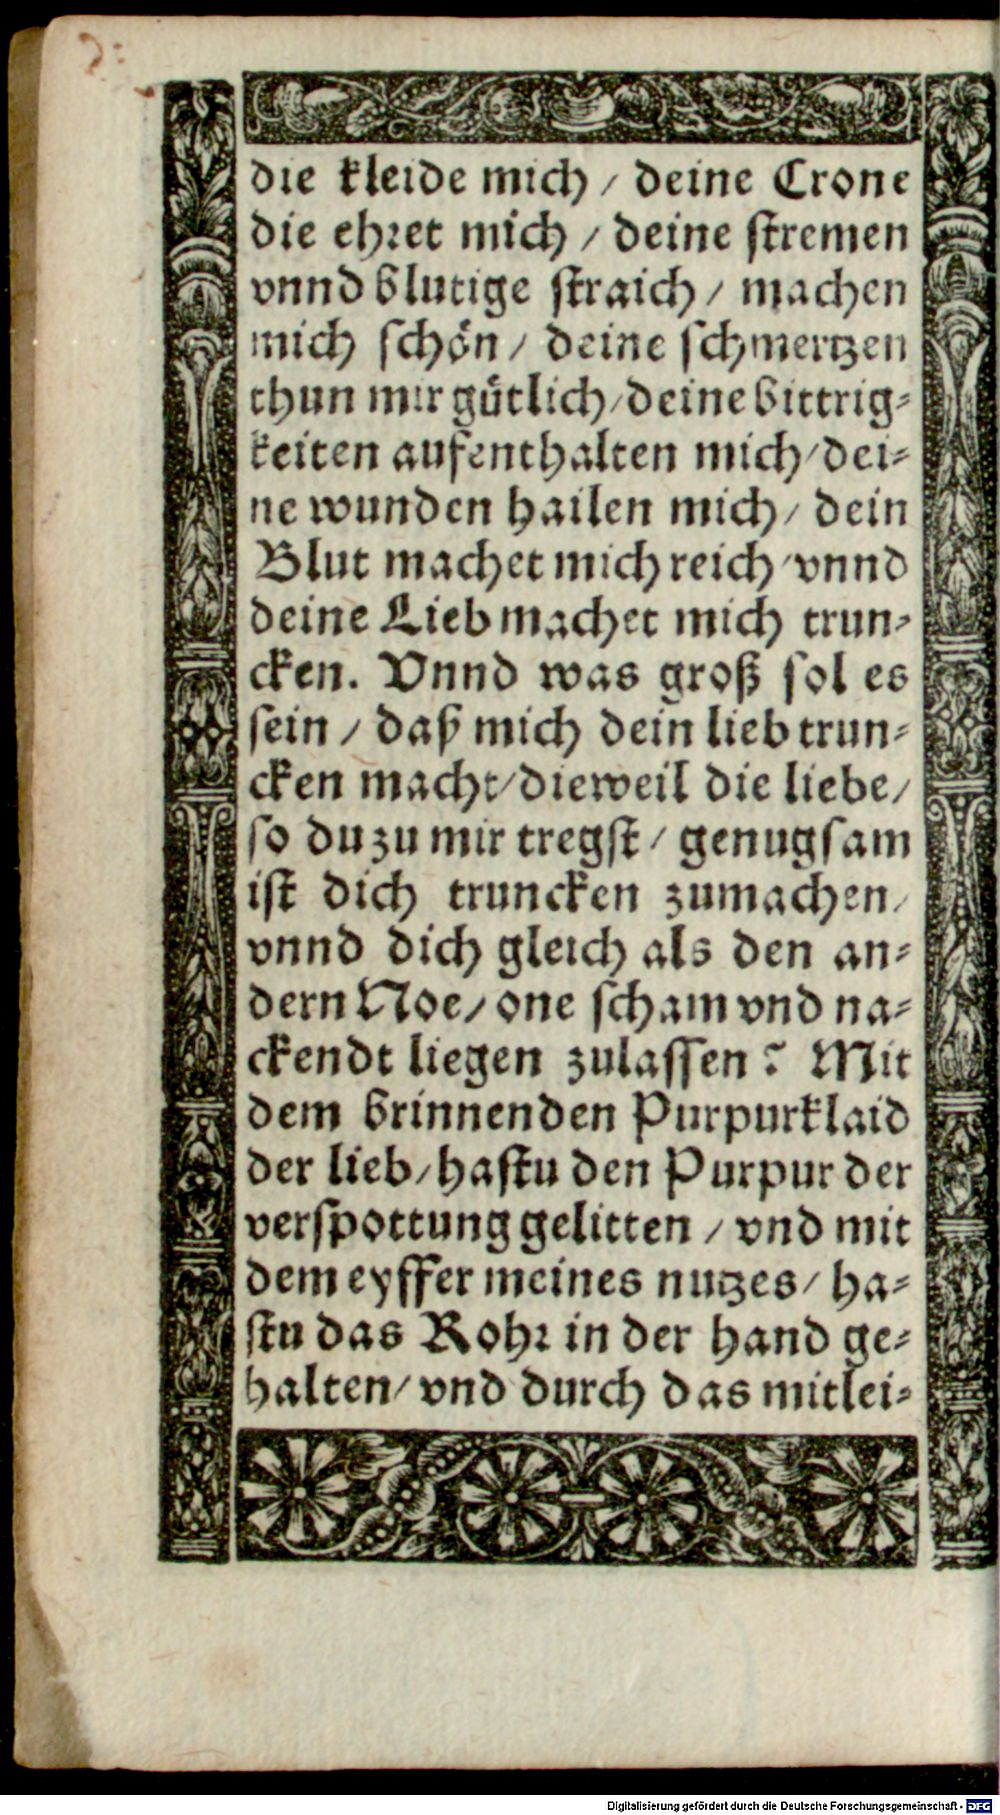 die kleide mich / deine Crone
die ehret mich / deine stremen
vnnd blutige straich / machen
mich schön / deine schmertzen
thun mir gütlich / deine bittrig-
keiten aufenthalten mich / dei-
ne wunden hailen mich / dein
Blut machet mich reich / vnnd
deine Lieb machet mich trun-
cken. Vnnd was groß sol es
sein / daß mich dein lieb trun-
cken macht / dieweil die liebe /
so du zu mir tregst / genugsam
ist dich truncken zumachen /
vnnd dich gleich als den an-
dern Noe / one scham vnd na-
ckendt liegen zulassen? Mit
dem brinnenden Purpurklaid
der lieb / hastu den Purpur der
verspottung gelitten / vnd mit
dem eyffer meines nutzes / ha-
stu das Rohr in der hand ge-
halten / vnd durch das mitlei-
Digitalisierung gefördert durch die Deutsche Forschungsgemeinschaft - DFG